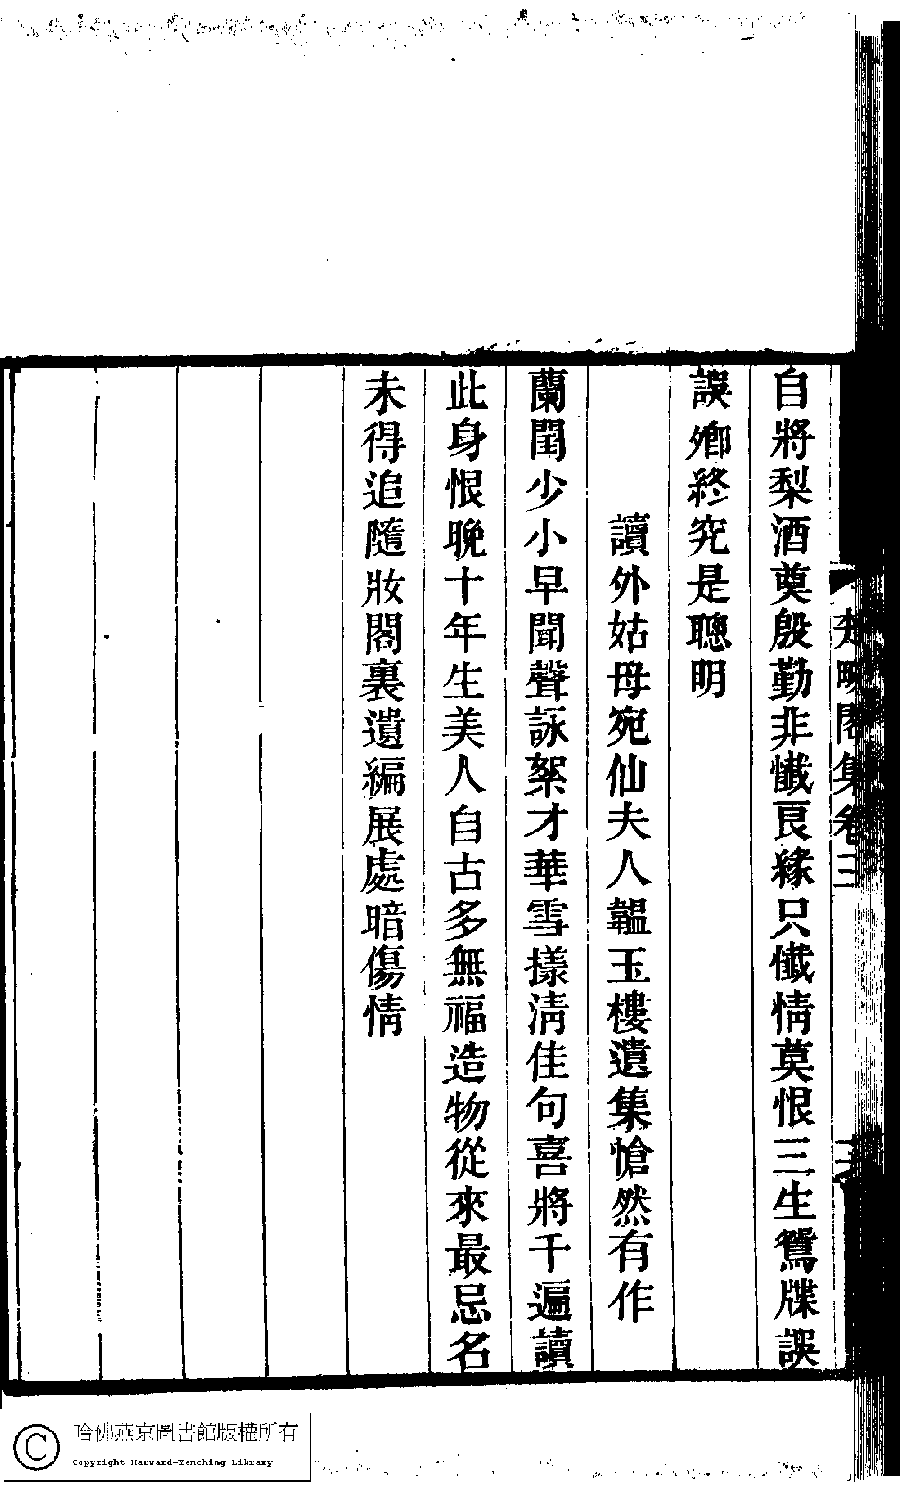 自將梨酒奠殷勤非懺良緣只懺情莫恨三生鴛牒誤
誤卿終究是聰明
讀外姑母宛仙夫人韞玉樓遺集愴然有作
蘭閨少小早聞聲詠絮才華雪樣淸佳句喜將千遍讀
此身恨晚十年生美人自古多無福造物從來最忌名
未得追隨妝閣裏遺編展處暗傷情
集卷三
哈佛燕京圖書館版權所有
Copyright Harvard-Yenching Library